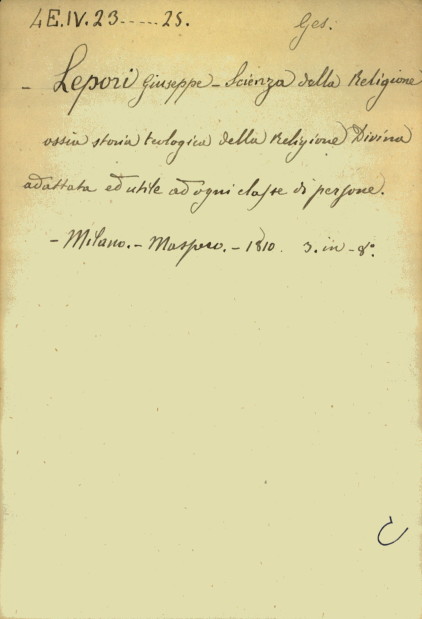 4E.IV.23......25. Ges:
- Lepori Giuseppe - Scienza della Religione
ossia storia teologica della Religione Divina
adattata ed utile ad ogni classe di persone.
- Milano. - Maspero. - 1810. 3. in - 8º.